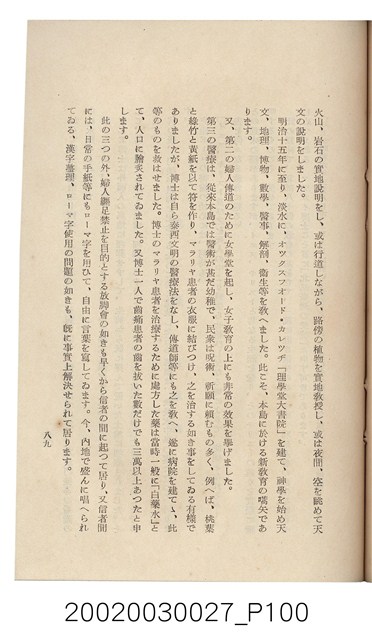 火山、岩石の實地説明をし、或は行道しながら、路傍の植物を實地敎授し、或は夜間、空を眺めて天
文の説明をしました。
明治十五年に至り、淡水に、オツクスフオード・カレツヂ「理學堂大書院」を建て、神學を始め天
文、地理、博物、數學、醫事、解剖、衞生等を敎へました。此こそ、本島に於ける新敎育の嚆矢であ
ります。
又、第二の婦人傳道のために女學堂を起し、女子敎育の上にも非常の效果を擧げました。
第三の醫療は、從來本島では醫術が甚だ幼稚で、民衆は呪術、祈願に賴むもの多く、例へば、桃葉
と綠竹と黃紙を以て符を作り、マラリヤ患者の衣服に結びつけ、之を治する如き事をしてゐる有樣で
ありましたが、博士は自ら泰西文明の醫療法をなし、傳道師等にも之を敎へ、遂に病院を建てゝ、此
等のものを救はせました。博士のマラリヤ患者を治療するために處方した藥は當時一般に「白藥水」と
て、人口に膾炙されてゐました。又博士一人で齒痛患者の齒を拔いた數だけでも三萬以上あつたと申
します。
此の三つの外、婦人纏足禁止を目的とする放脚會の如きも早くから信者の間に起つて居り、又信者間
には、日常の手紙等にもローマ字を用ひて、自由に言葉を寫してゐます。今、內地で盛んに唱へられ
てゐる、漢字整理、ローマ字使用の問題の如きも、旣に事實上解決せられて居ります。
八九
20020030027_P100